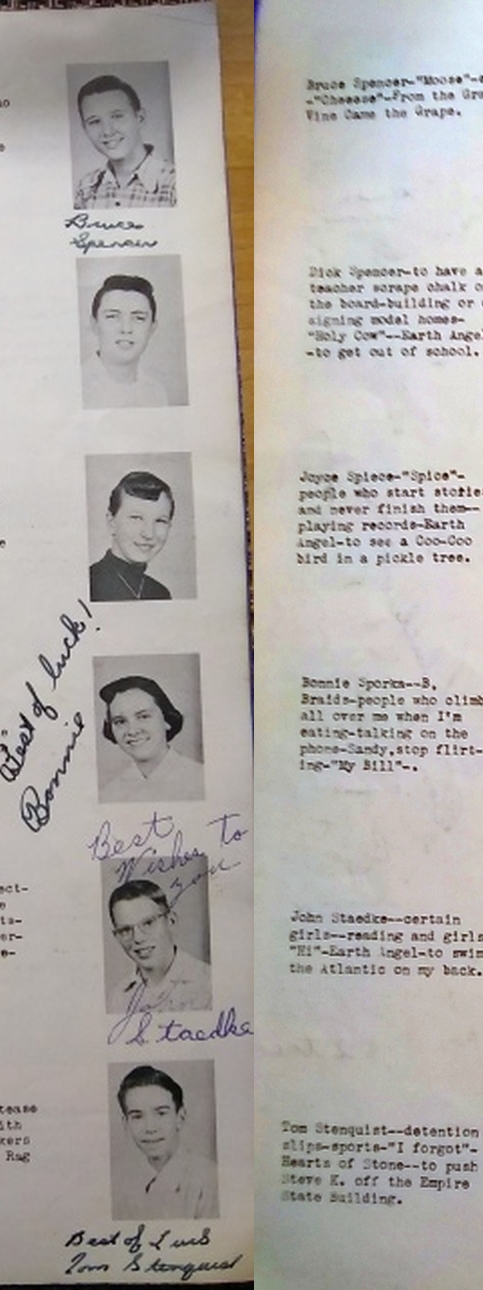 Bruce
Spencer
Best of luck!
Bonnie
Best
Wishes to
you
John
Staedke
Best of Luck
Tom Stenquist
ect-
ts-
er-
e-
tease
ith
kers
Rag
Bruce Spencer-"Moose"-
-"Cheeese"-From the Gra
Vine Came the Grape.
Dick Spencer-to have a
teacher scrape chalk o
the board-building or
signing model homes-
"Holy Cow"--Earth Angel
-to get out of school.
Joyce Spiece-"Spice"-
people who start stories
and never finish them--
playing records-Earth
Angel-to see a Coo-Coo
bird in a pickle tree.
Bonnie Sporka--B.
Braids-people who climb
all over me when I'm
eating-talking on the
phone-Sandy,stop flirt-
ing-"My Bill"-.
John Staedke--certain
girls--reading and girls
"Hi"-Earth Angel-to swim
the Atlantic on my back.
Tom Stenquist--detention
slips-sports-"I forgot"-
Hearts of Stone--to push
Steve K. off the Empire
State Building.